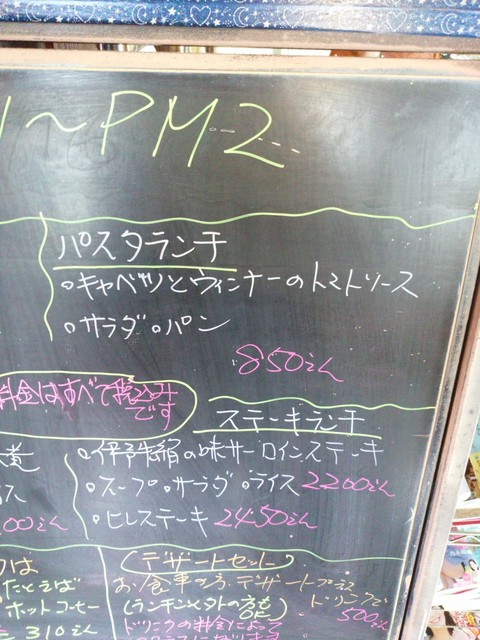 ~PM2
パスタランチ
・キャベツとウィンナーのトマトソース
・サラダ・パン
850えん
料金はすべて税込み
です
ステーキランチ
・伊予牛絹の味サーロインステーキ
・スープ・サラダ・ライス 2200えん
・ヒレステーキ 2450えん
00えん
デザートセット
お食事の方、デザートプラス
ドリンクで
500えん
(ランチ以外の方も
可能)
ドリンクの料金によって
は
たとえば
ホットコーヒー
310えん